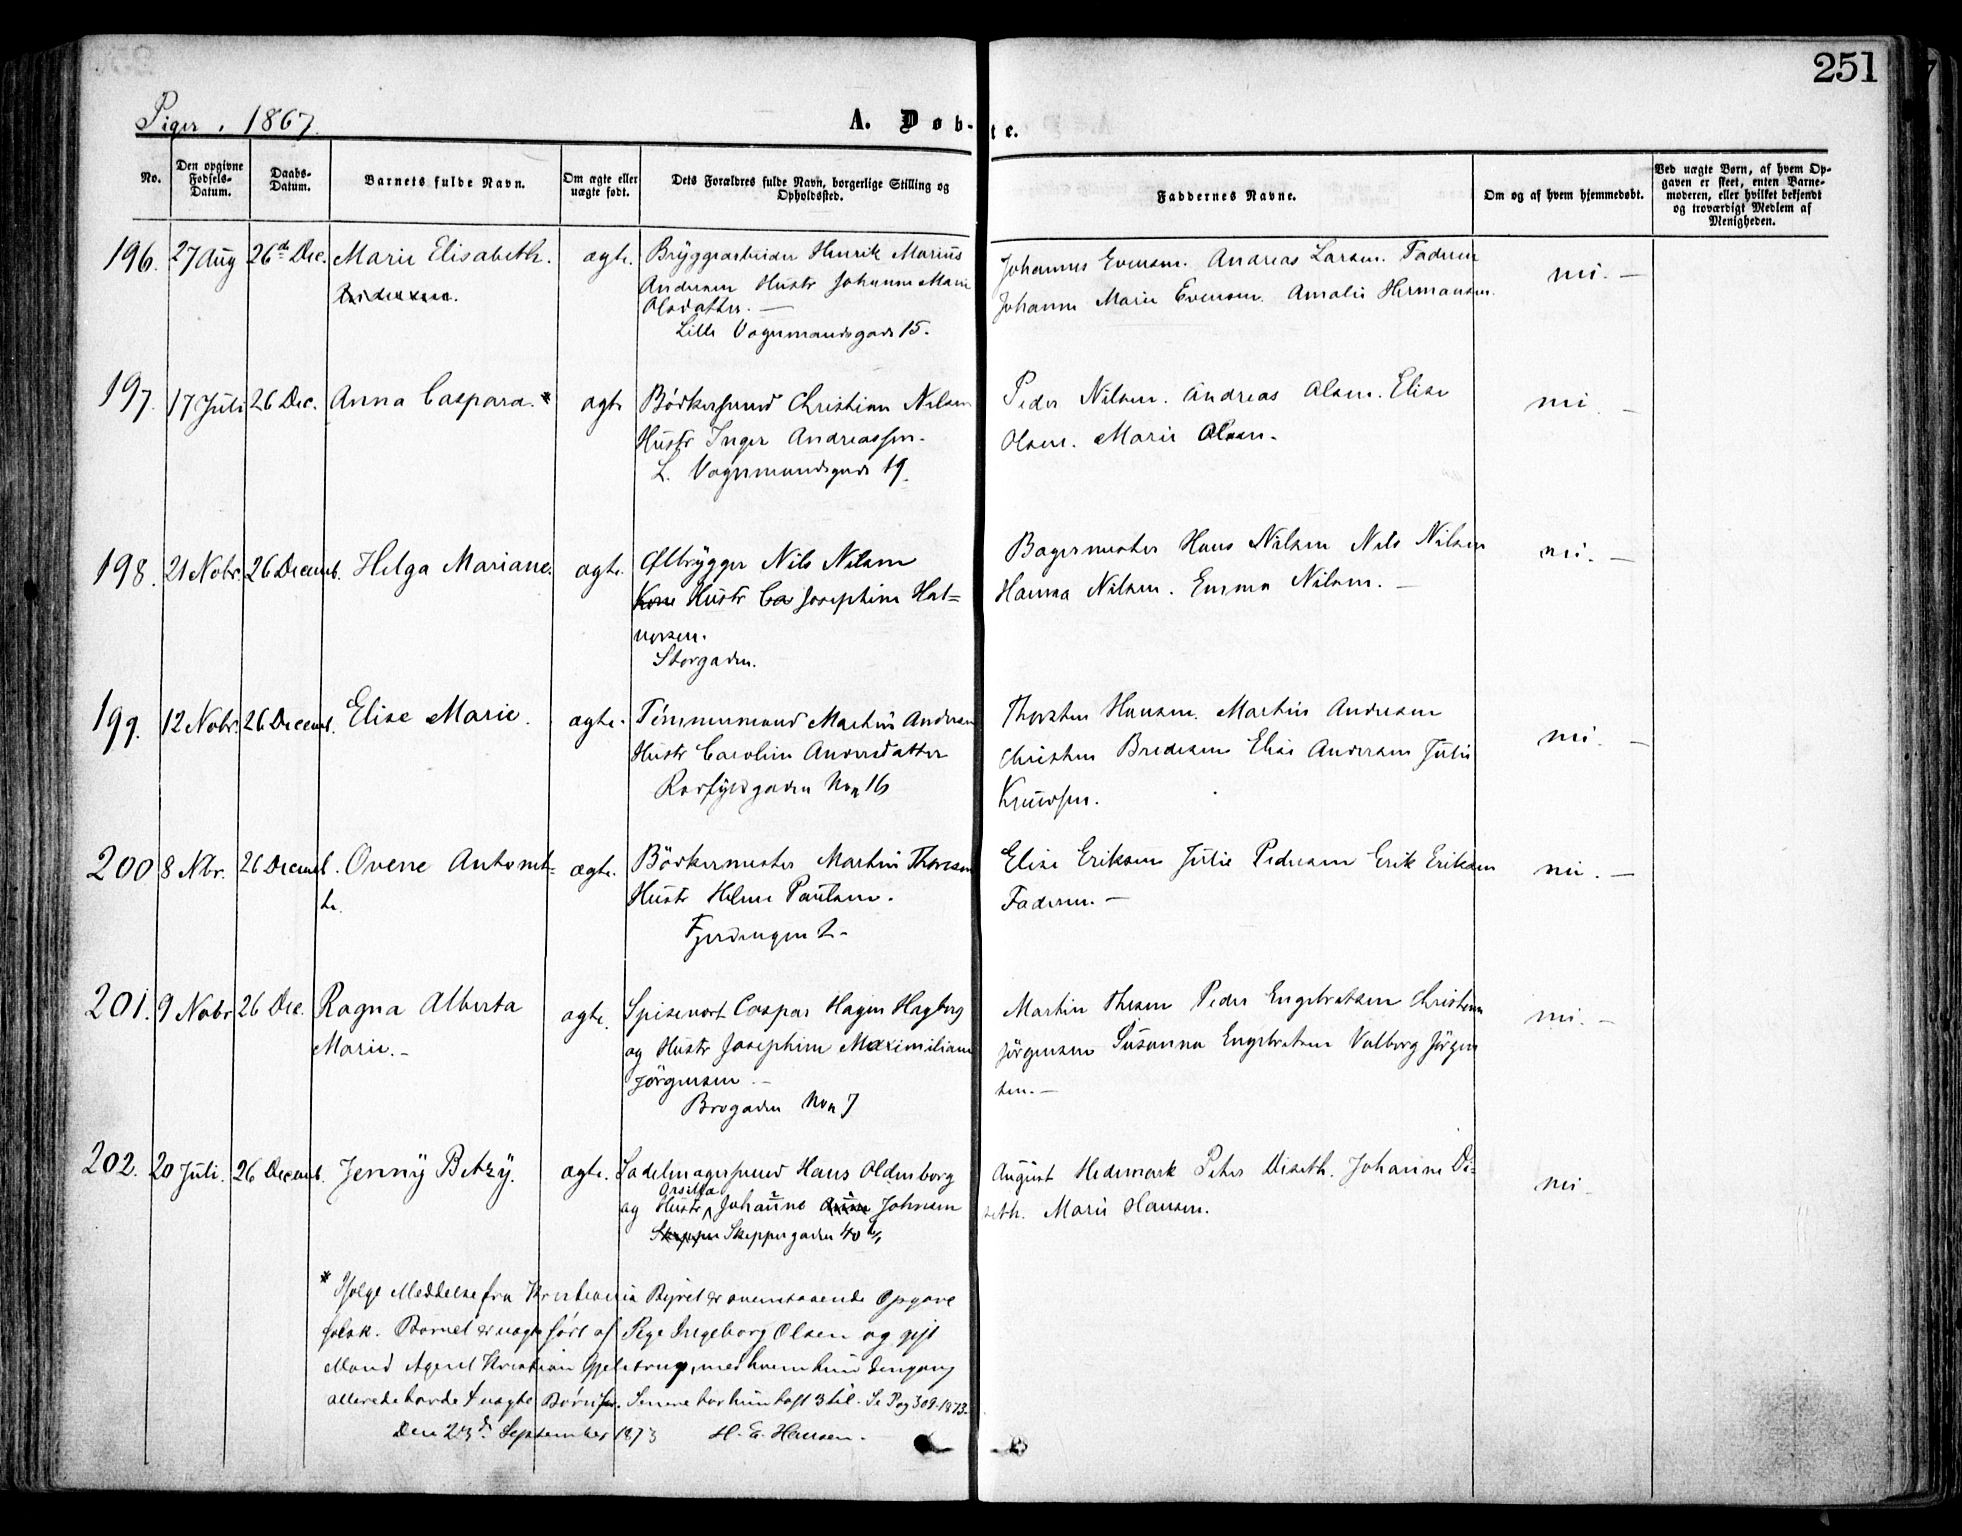 251
Piger. 1867.
A. Døb-te.
No.
Den opgivne Fødsels-Datum.
Daabs-Datum.
Barnets fulde Navn.
Om ægte eller uægte født.
Dets Forældres fulde Navn, borgerlige Stilling og Opholdssted.
Faddernes Navne.
Om og af hvem hjemmedøbt.
Ved uægte Børn, af hvem Opgaven er skeet, enten Barnemoderen, eller hvilket bekjendt og troværdigt Medlem af Menigheden.
196. 27 Aug 26de Dec. Marie Elisabeth. ægte. Bryggearbeider Henrik Marius
Andersen Hustr Johanne Marie
Olsdatter. —
Lille Vognmandsgade 15.
Johannes Evensen. Andreas Larsen. Faderen
Johanne Marie Evensen. Amalie Hermansen.
nei. —
197. 17 Juli 26 Dec. Anna Caspara. * ægte Bødkersvend Christian Nilsen
Hustr Inger Andreassen.
L. Vognmandsgade 19.
Peder Nilsen. Andreas Olsen. Elise
Olsen. Marie Olsen.
nei. —
198. 21 Nobr. 26 Decemb. Helga Mariane. ægte. Ølbrygger Nils Nilsen
Kone Hustr Ca Josephine Hal=
vorsen.
Storgaden.
Bagermester Hans Nilsen Nils Nilsen
Hanna Nilsen. Emma Nilsen. —
nei. —
199. 12 Nobr. 26 Decemb. Elise Marie. ægte. Tømmermand Martin Andersen
Hustr Caroline Andersdatter
Rørfyldgaden No 16
Thorsten Hansen. Martin Andersen
Christen Bredesen Elise Andersen Julie
Knudsen.
nei. —
200 8 Nbr. 26 Decemb. Ovene Antonet=
te. ægte. Bødkermester Martin Thoresen
Hustr Helene Paulsen.
Fjerdingen 2-
Elise Eriksen Julie Pedersen Erik Eriksen
Faderen. —
nei. —
201. 9 Nobr 26 Dec. Ragna Alberta
Marie. — ægte. Spisevært Caspar Hagen Hagberg
og Hustr Josephine Maximiliane
Jörgensen —
Brogaden No 7
Martin Thesen Peder Engebretsen Christian
Jörgensen Susanna Engebretsen Valborg Jörgen
sen. —
nei. —
202. 20 Juli. 26 Decemb. Jenny Betzy. ægte. Sadelmagersvend Hans Oldenborg
og Hustr Johanne Johnsen
Skeppergaden 40
August Hedemark Peter Diseth. Johanne Di=
seth. Marie Hansen.
nei
* Ifølge Meddelse fra Kristiania Byret er ovenstaaende Opgave
falsk. Barnet er uægte født af Pige Ingeborg Olsen og gift
Mand Agent Kristian Gjeletrup, med hvem hun dengang
allerede havde 4 uægte Børn før. Senere har hun havt 3 til. Se Pag 309. 1873.
Den 23de September 1873 H. E. Hansen.